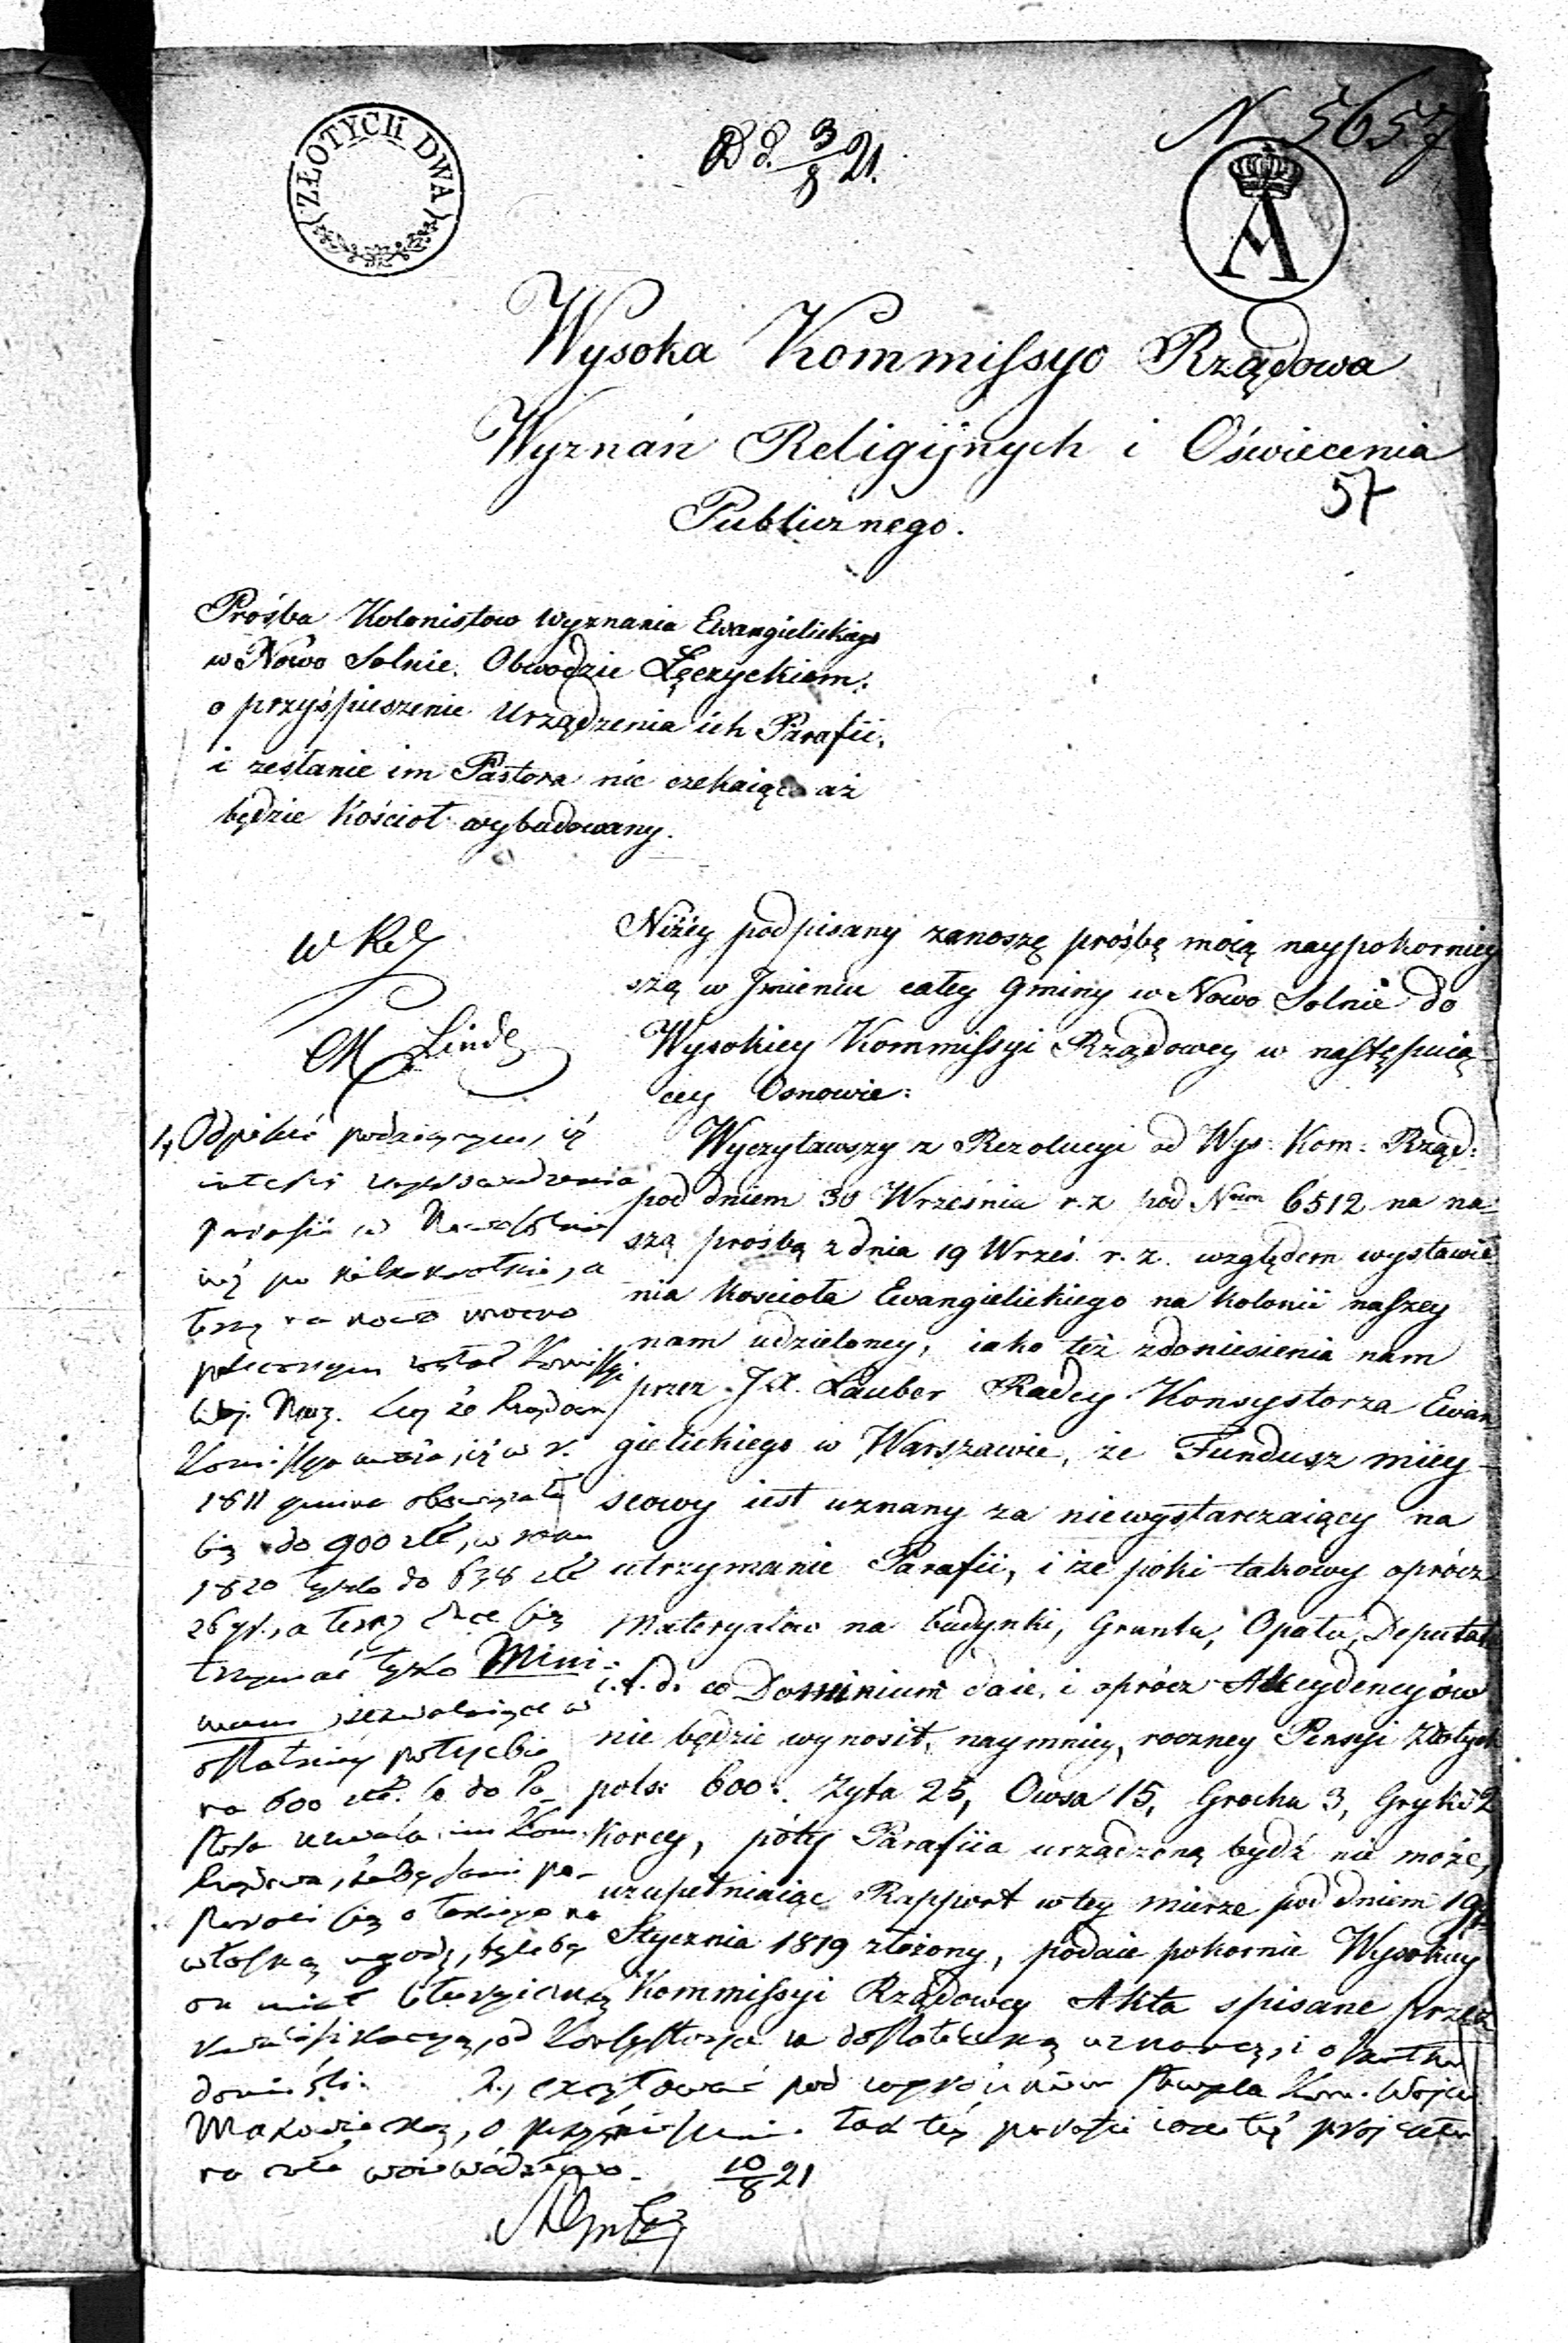 ZŁOTYCH DWA
N 5657
Dd. 3/8 21.
A
Wysoka Kommissyo Rządowa
Wyznań Religijnych i Oświecenia
57
Publicznego.
Prośba Kolonistow Wyznania Ewangielickiego
w Nowo Solnie. Obwodzie Łęczyckiem.
o przyśpieszenie Urządzenia ich Parafii,
i zesłanie im Pastora nie czekaiąc aż
będzie Kościoł wybudowany.
Niżey podpisany zanoszę prośbę moią naypokorniey
szą w Jmieniu całey Gminy w Nowo Solnie do
Wysokiey Kommissyi Rządowey w następuią-
cey Osnowie:
Wyczytawszy z Rezolucyi od Wys: Kom: Rząd:
pod dniem 30 Września r. z pod Nrem 6512 na na-
szą prosbą z dnia 19 Wrześ. r. z. względem wystawie
nia Kościoła Ewangielickiego na Kolonii naszey
nam udzieloney, iako też z doniesienia nam
przez J.X. Lauber Radcy Konsystorza Ewan
gielickiego w Warszawie, że Fundusz miey-
scowy iest uznany za niewystarczaiący na
utrzymanie Parafii, i że poki takowy oprócz
Materyałow na budynki, Gruntu, Opału, Deputatu
i.t.d. co Dominium daie, i oprócz Akcydencyów
nie będzie wynosił, naymniey, roczney Pensyi Złotych
pols: 600. Żyta 25, Owsa 15, Grochu 3, Gryki 2
Korcy, póty Parafiia urządzoną bydź nie może,
uzupełniaiąc Rapport w tey mierze pod dniem 19
Stycznia 1819 złożony, podaie pokornie Wysokiey
Kommissyi Rządowey Akta spisane przez
W Rel
Linde
1, Odpisać podaiącym, iż
Parafii w Nowosolnie
iuż po kilkakrotnie, a
teraz na nowo mocno
poleconym został Kommissyi
Woj. Maz. Lecz że Rządowa
Komissya uważa, iż w r.
1811 gmina obowiązała
się do 900 złł, w roku
1820 tylko do 638 złł
26 gr., a teraz chce się
trzymać tylko Mini-
mum, zezwalaiąc w
ostatniey potrzebie
na 600 złł. Co do Pa-
stora
Rządowa, żeby sami po-
starali się o takiego na
własną ugodę, byle by
on miał
kwalifikacyą, od Konsystorza za dostateczną uznaną, i o skutku
donieśli. 2., pod Kom. Wojew
Mazowiecką, o
10/8 21